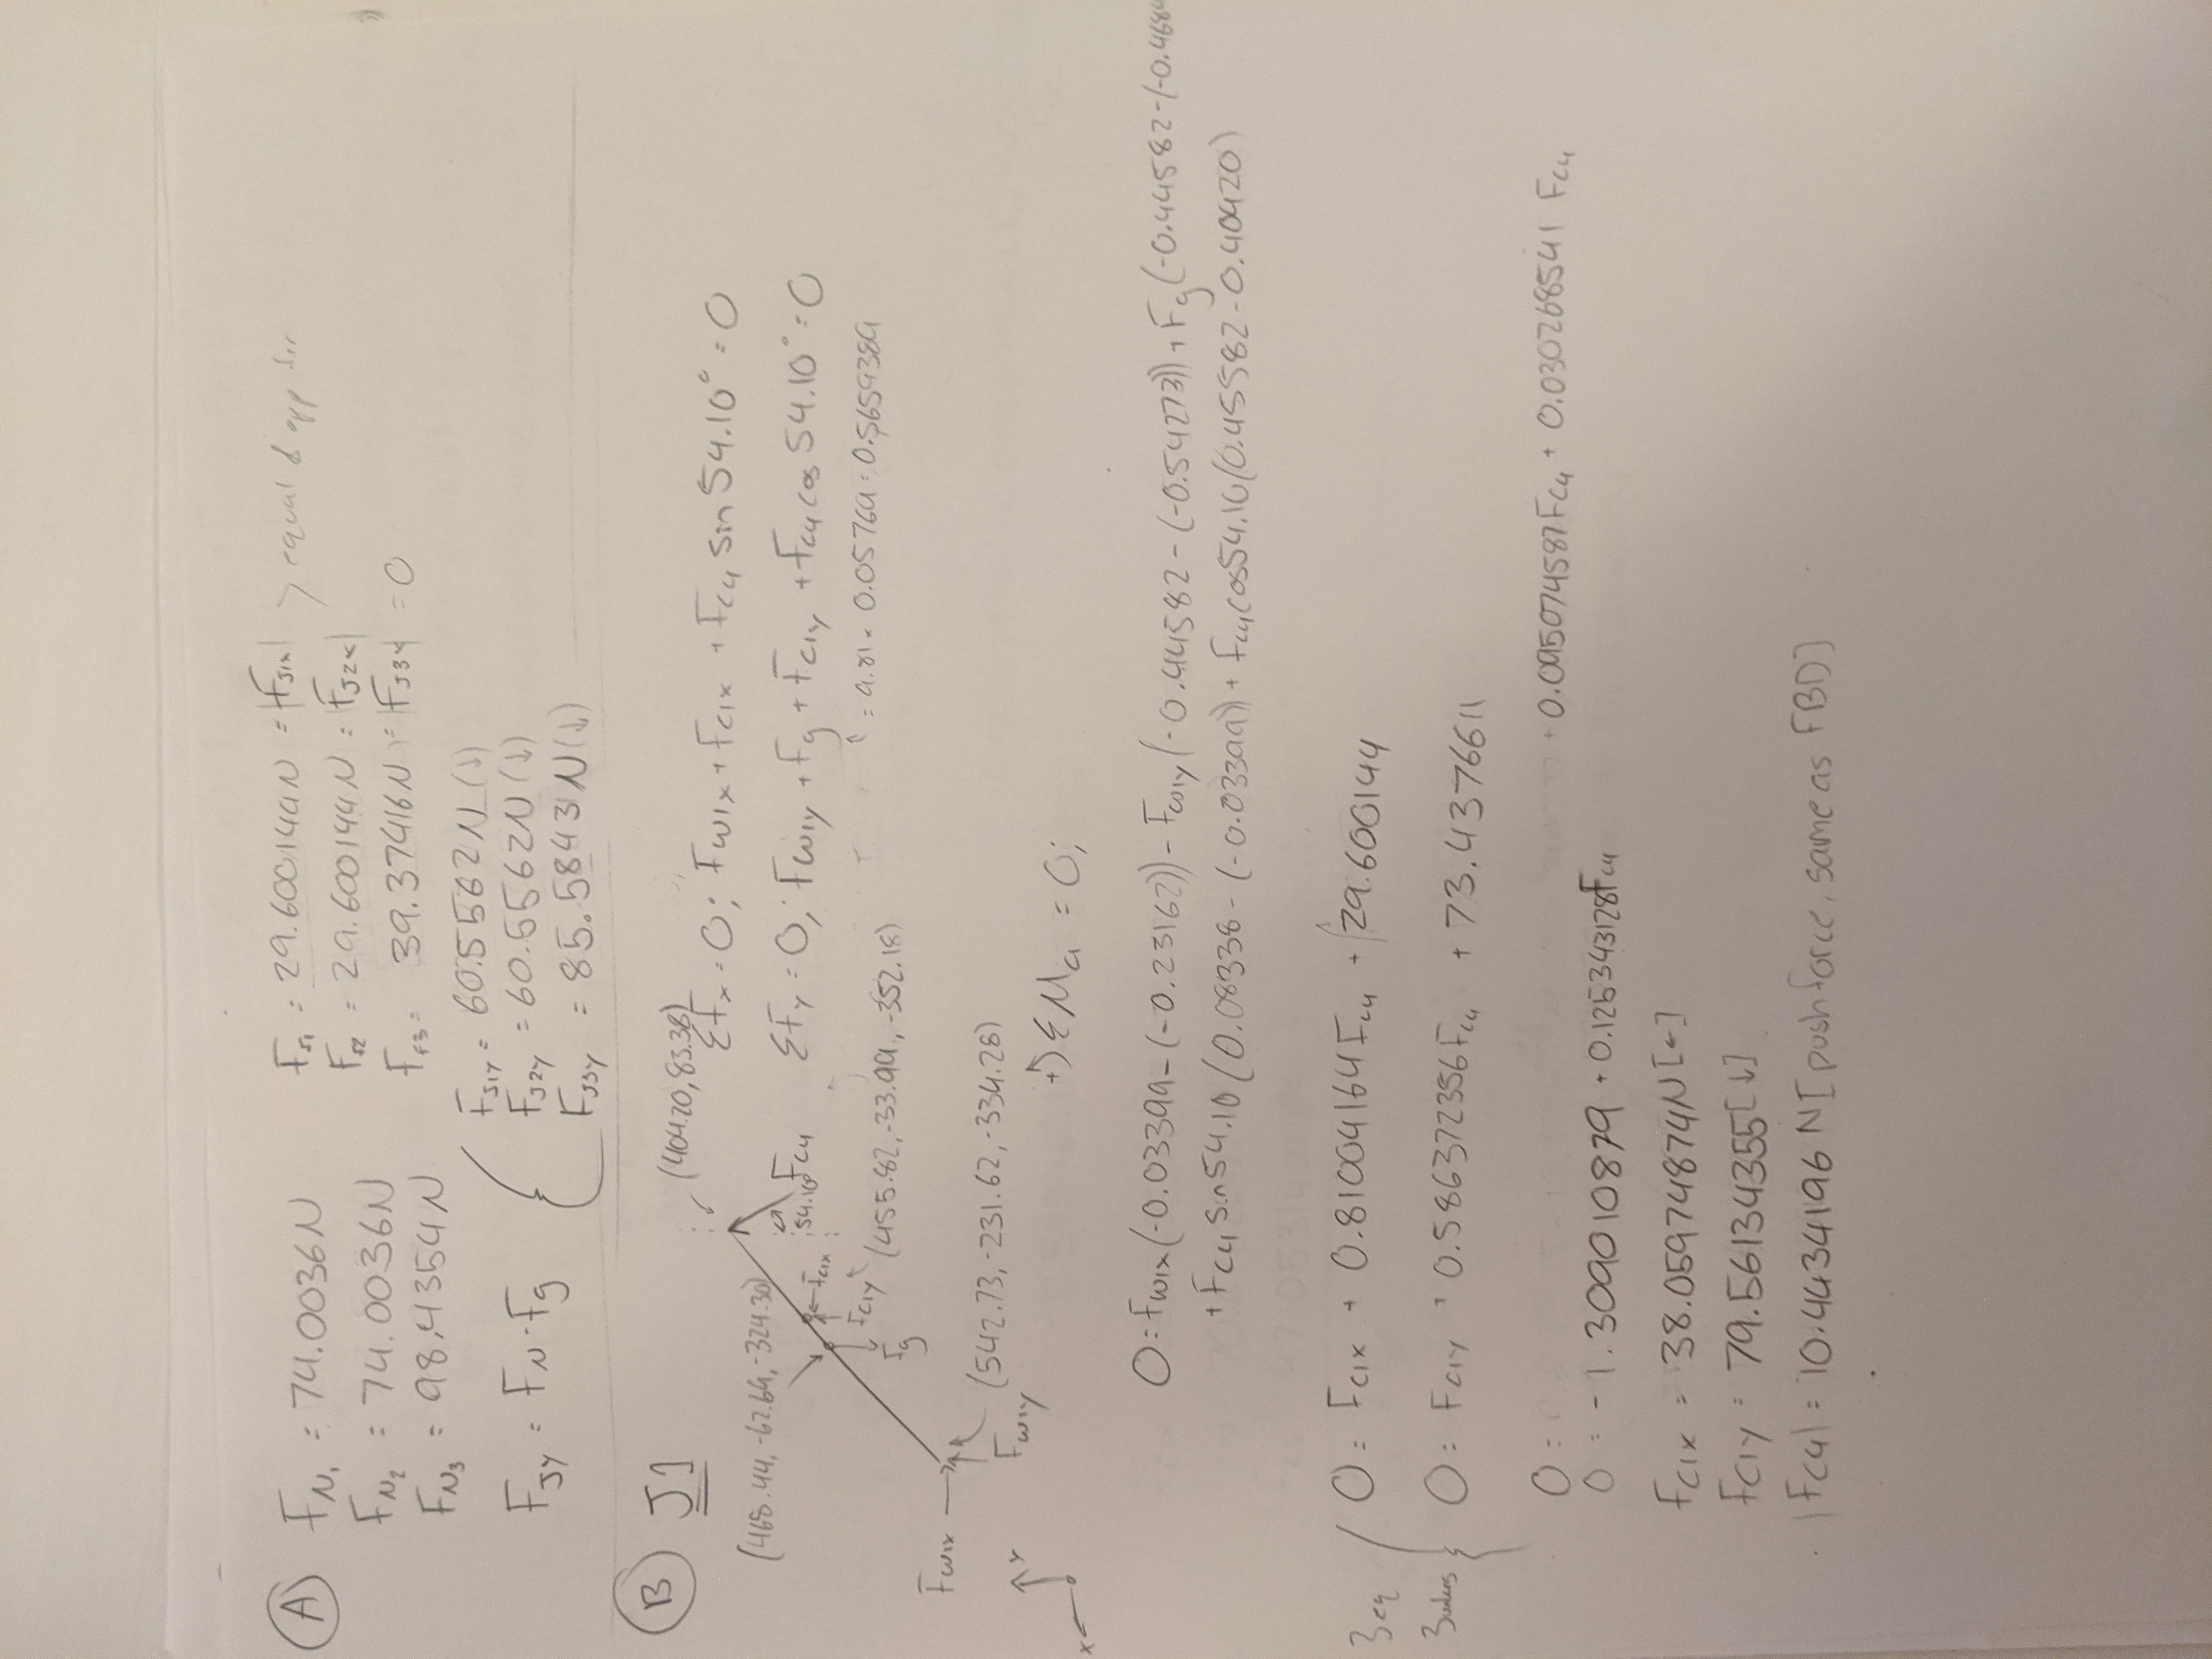 A
F_N1 = 74.0036N
F_N2 = 74.0036N
F_N3 = 98.4354N
F_JY = F_N - F_g
F_f1 = 29.600144N = |F_J1x| > equal & opp for
F_f2 = 29.600144N = |F_J2x|
F_f3 = 39.37416N = |F_J3x| = 0
F_J1Y = 60.5562N (↓)
F_J2Y = 60.5562N (↓)
F_J3Y = 85.5843N (↓)
B J1
(404.20, 83.38)
(468.44, -62.64, -324.30)
54.10° F_C4
F_C1x
F_C1Y
F_g
(455.82, -33.99, -352.18)
F_W1x
F_W1Y
(542.73, -231.62, -334.28)
Y
X
ΣF_x = 0; F_W1x + F_C1x + F_C4 sin 54.10° = 0
ΣF_Y = 0; F_W1Y + F_g + F_C1Y + F_C4 cos 54.10° = 0
= 9.81 × 0.05769 = 0.5659389
+ ΣM_a = 0;
0 = F_W1x (-0.03399 - (-0.23162)) - F_W1Y (-0.44582 - (-0.54273)) + F_g (-0.44582 - (-0.4684
+ F_C4 sin 54.10 (0.08338 - (-0.03399)) + F_C4 cos 54.10 (0.45582 - 0.40420)
3eq
0 = F_C1x + 0.81004164 F_C4 + 29.600144
0 = F_C1Y + 0.586372356 F_C4 + 73.4376611
0 = + 0.095074587 F_C4 + 0.030268541 F_C4
0 = -1.309010879 + 0.125343128 F_C4
F_C1x = 38.05974874N [←]
F_C1Y = 79.56134355 [↓]
|F_C4| = 10.4434196 N [push force, same as FBD]